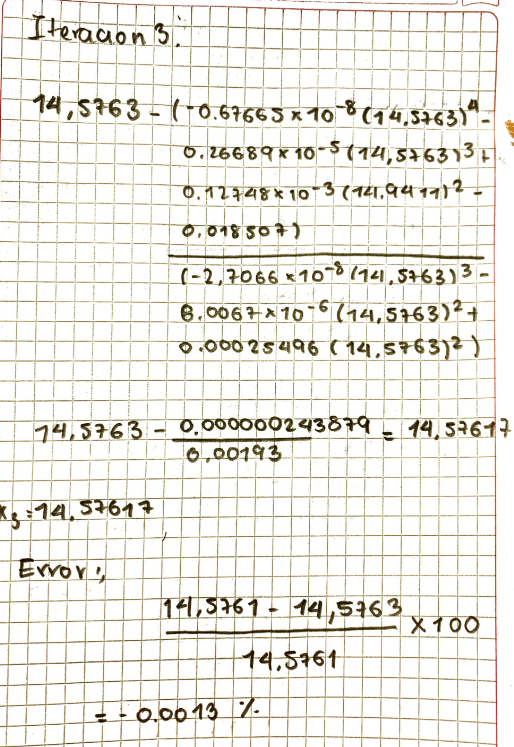 Iteracion 3.
14,5763 - (-0.67665 × 10⁻⁸ (14,5763)⁴ -
0.26689 × 10⁻⁵ (14,5763)³ +
0.12748 × 10⁻³ (14.9411)² -
0.018507)
(-2,7066 × 10⁻⁸ (14,5763)³ -
8.0067 × 10⁻⁶ (14,5763)² +
0.00025496 (14,5763)²)
14,5763 - 0.000000243879 = 14,57617
0,00193
x₃ = 14.57617
Error:,
14,5761 - 14,5763 × 100
14,5761
= - 0.0013 %.